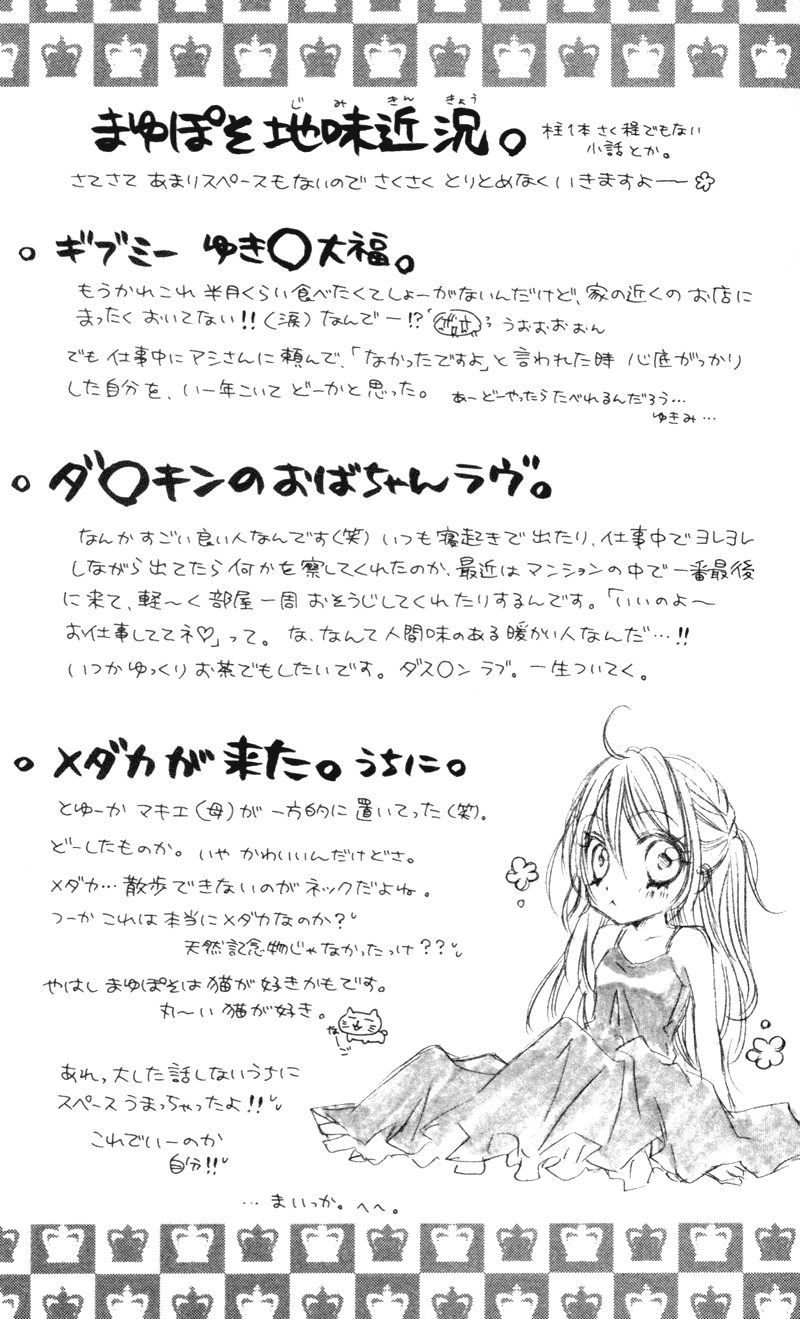 まゆぽそ地味近況。
じみきんきょう
柱1本さく程でもない
小話とか。
さてさて あまりスペースもないので さくさく とりとめなく いきますよー
。ギブミー ゆき〇大福。
もうかれこれ 半月くらい食べたくてしょーがないんだけど、家の近くの お店に
まったく おいてない!!(涙) なんでー!? うおおおおん
でも 仕事中に アシさんに 頼んで、「なかったですよ」と 言われた時 心底がっかり
した自分を、いー年こいて どーかと思った。 あーどーやったらたべれるんだろう…
ゆきみ…
。ダ〇キンのおばちゃんラヴ。
なんか すごい 良い人なんです(笑) いつも 寝起きで 出たり、仕事中で ヨレヨレ
しながら 出てたら 何かを 察してくれたのか、最近は マンションの中で 一番最後
に 来て、軽〜く 部屋 一周 おそうじしてくれたりするんです。「いいのよ〜
お仕事しててネ♡」って。 な、なんて 人間味のある 暖かい人なんだ…!!
いつか ゆっくり お茶でもしたいです。 ダス〇ン ラブ。一生ついてく。
。メダカが 来た。うちに。
とゆーか マキエ(母)が 一方的に 置いてった(笑)。
どーしたものか。 いや かわいいんだけどさ。
メダカ… 散歩できないのが ネックだよね。
つーか これは 本当に メダカなのか?
天然記念物じゃなかったっけ??
やはし まゆぽそは 猫が 好きかもです。
丸〜い 猫が 好き。
なーご
あれっ 大した 話 しないうちに
スペース うまっちゃったよ!!
これでいーのか
自分!!
… まいっか。へへ。